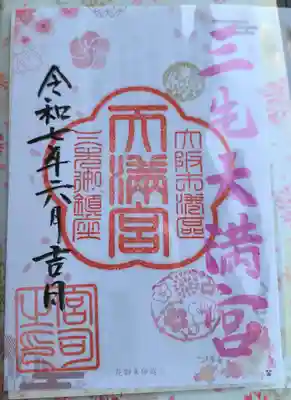 三先天満宮
大阪市港區
天満宮
三先御鎮座
令和七年六月吉日
宮司
之印